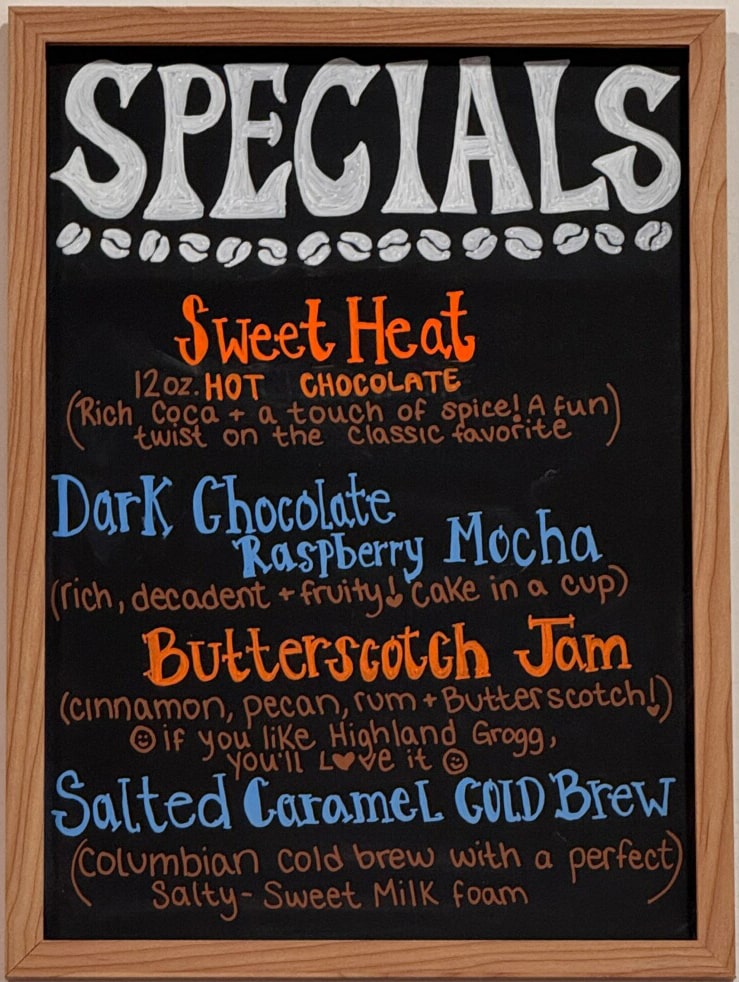 SPECIALS
Sweet Heat
12oz. HOT CHOCOLATE
(Rich Coca + a touch of spice! A fun
twist on the classic favorite)
Dark Chocolate
Raspberry Mocha
(rich, decadent + fruity! Cake in a cup)
Butterscotch Jam
(cinnamon, pecan, rum + Butterscotch!)
☺ if you like Highland Grogg,
you'll L♥ve it ☺
Salted Caramel COLD Brew
(Columbian cold brew with a perfect
Salty-Sweet Milk foam)